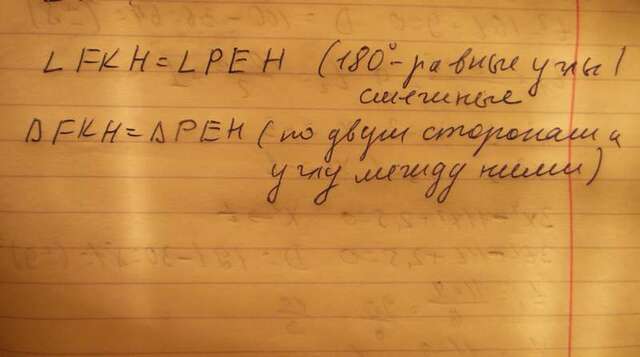 ∠FKH=∠PEH (180°-равные углы /
смежные
ΔFKH=ΔPEH (по двум сторонам и
углу между ними)